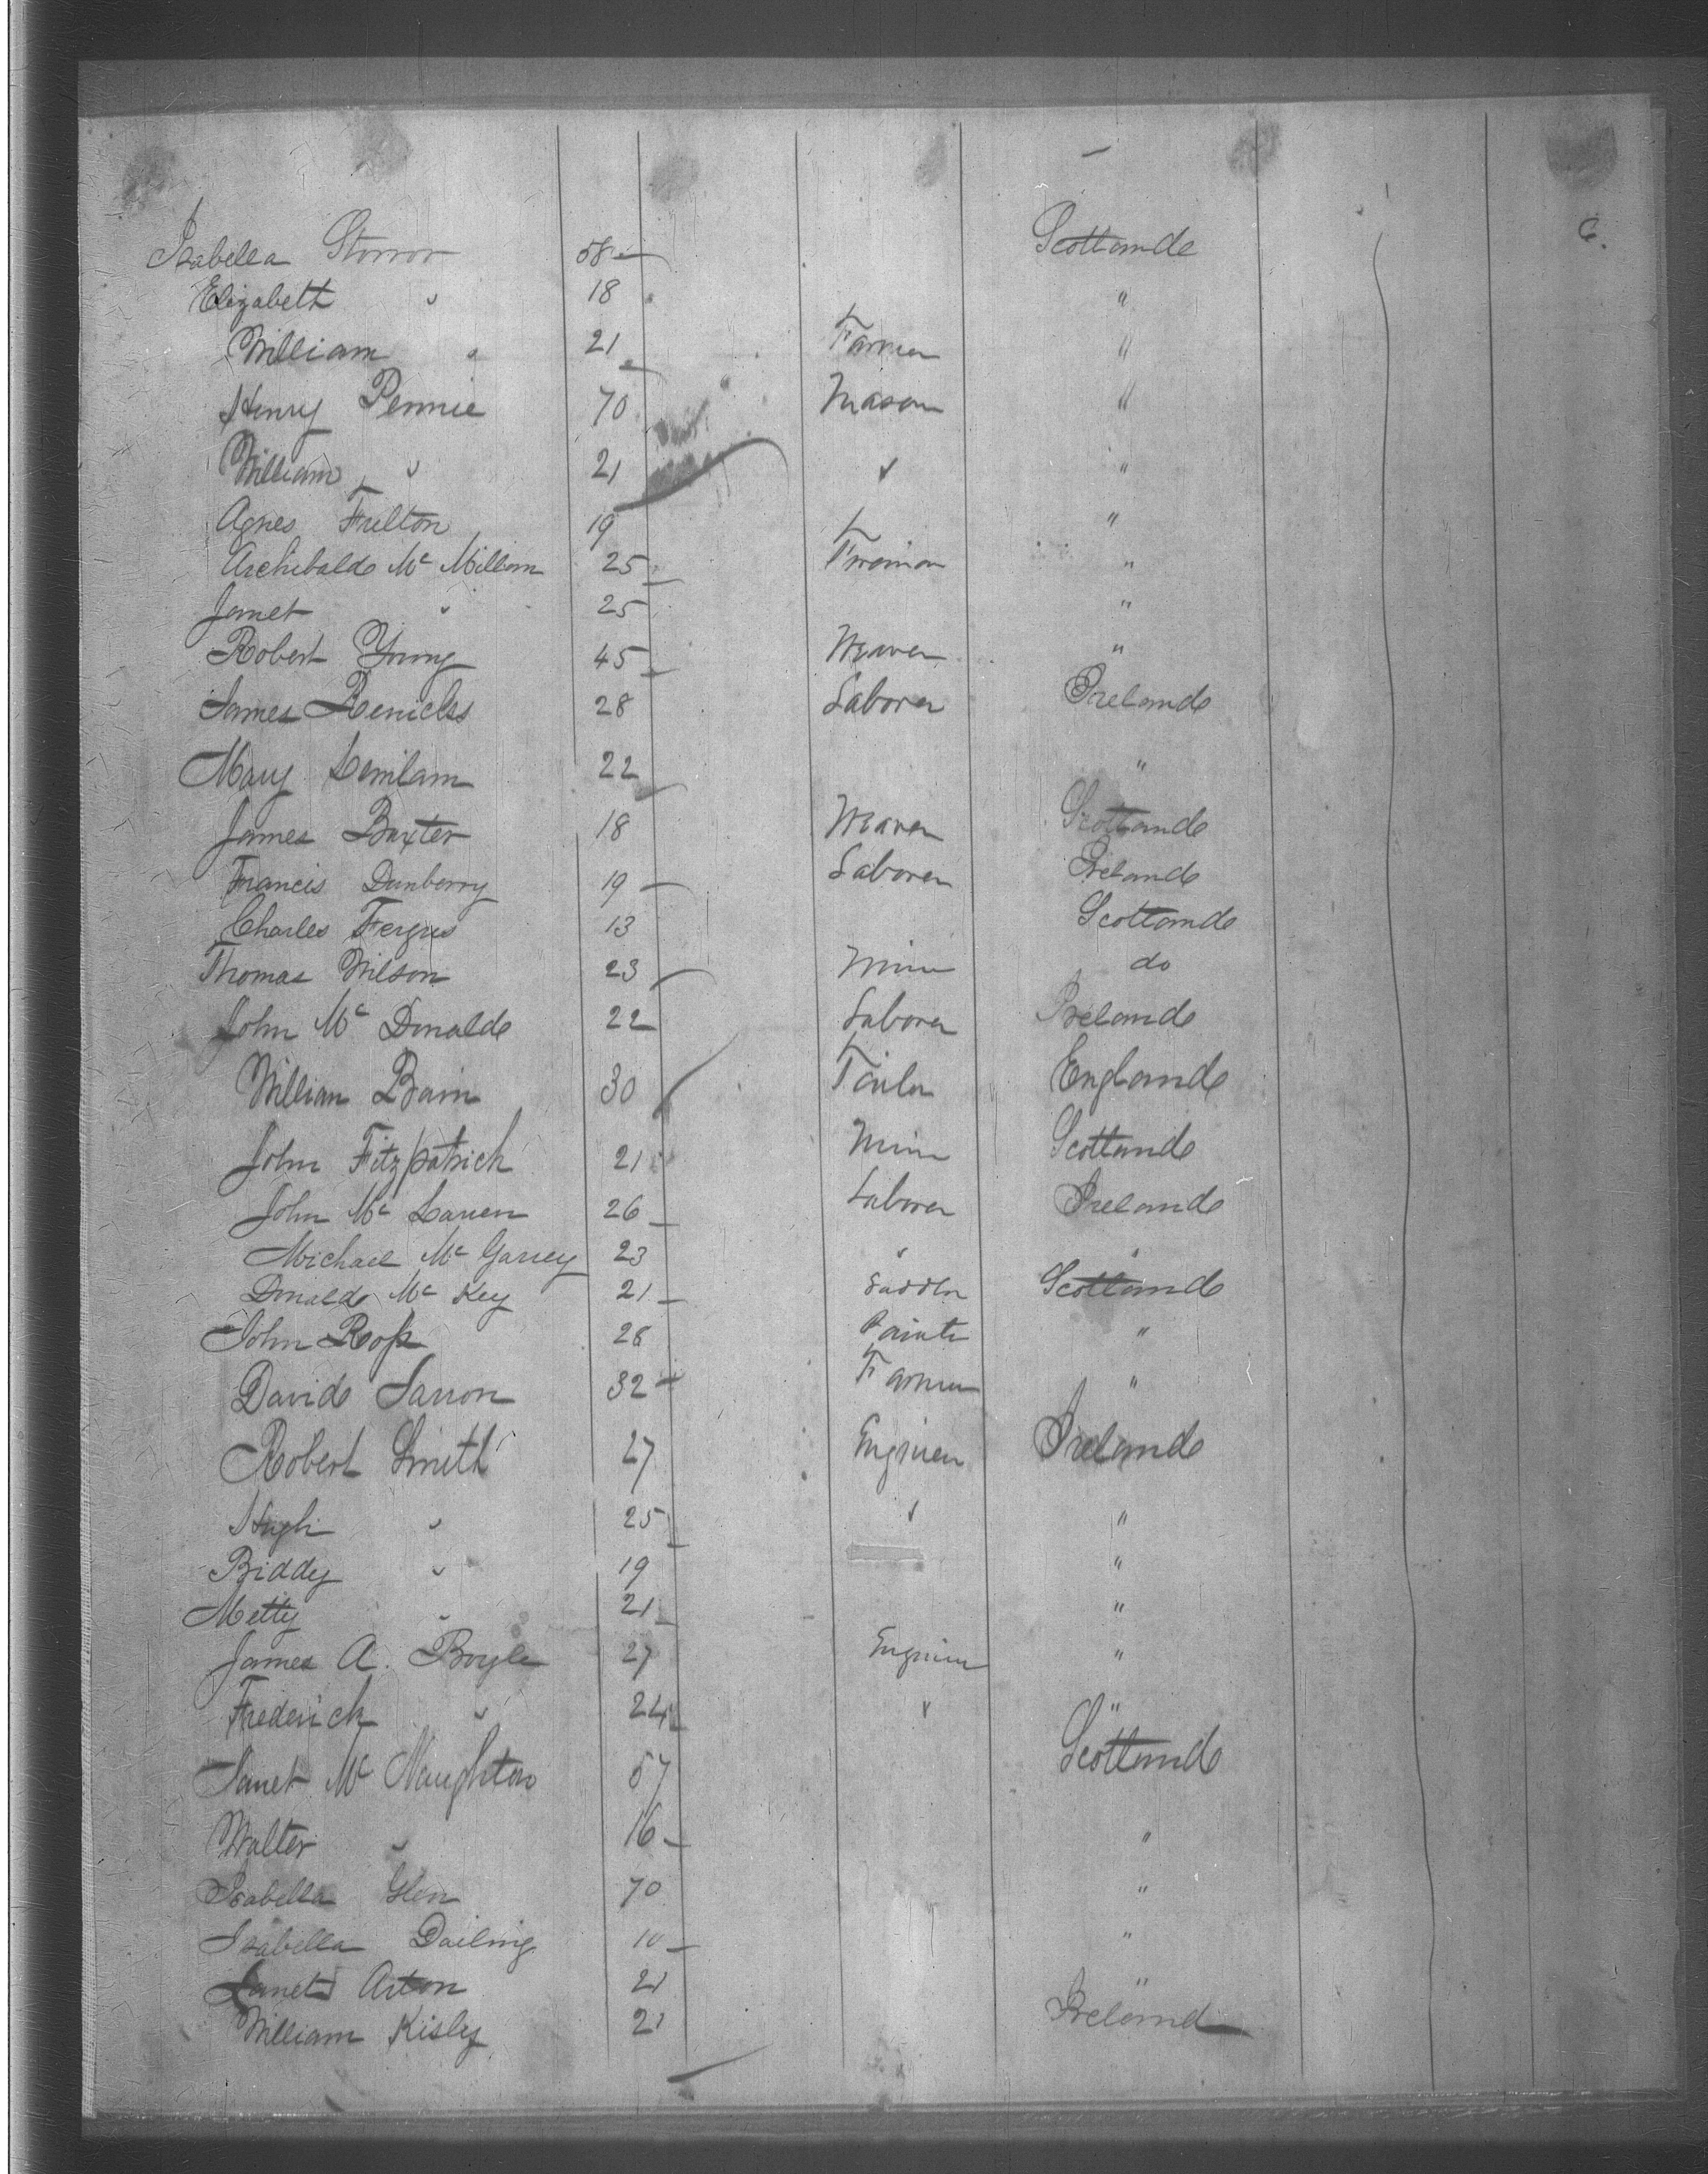 6.
Isabella Storror 58 Scotland
Elizabeth " 18 "
William " 21 Farmer "
Henry Pennie 70 Mason "
William " 21 " "
Agnes Fulton 19 "
Archibald Mc Millan 25 "
Janet " 25 "
Robert Young 45 Weaver "
James 28 Laborer Ireland
Mary 22 "
James Baxter 18 Weaver Scotland
Francis Dunberry 19 Laborer Ireland
Charles Fergus 13 Scotland
Thomas Wilson 23 Miner do
John Mc Donald 22 Laborer Ireland
William Bain 30 Tailor England
John Fitzpatrick 21 Miner Scotland
John Mc Laren 26 Laborer Ireland
Michael Mc Garrey 23 " "
Donald Mc Key 21 Saddler Scotland
John Ross 28 Painter "
David 32 Farmer "
Robert Smith 27 Engineer Ireland
Hugh " 25 " "
Biddy " 19 "
Metty " 21 "
James A. Boyle 27 Engineer "
Frederick " 24 " "
Janet Mc Naughton 57 Scotland
Walter " 16 "
Isabella Glen 70 "
Isabella 10 "
Janet 21 "
William Kisley 21 Ireland